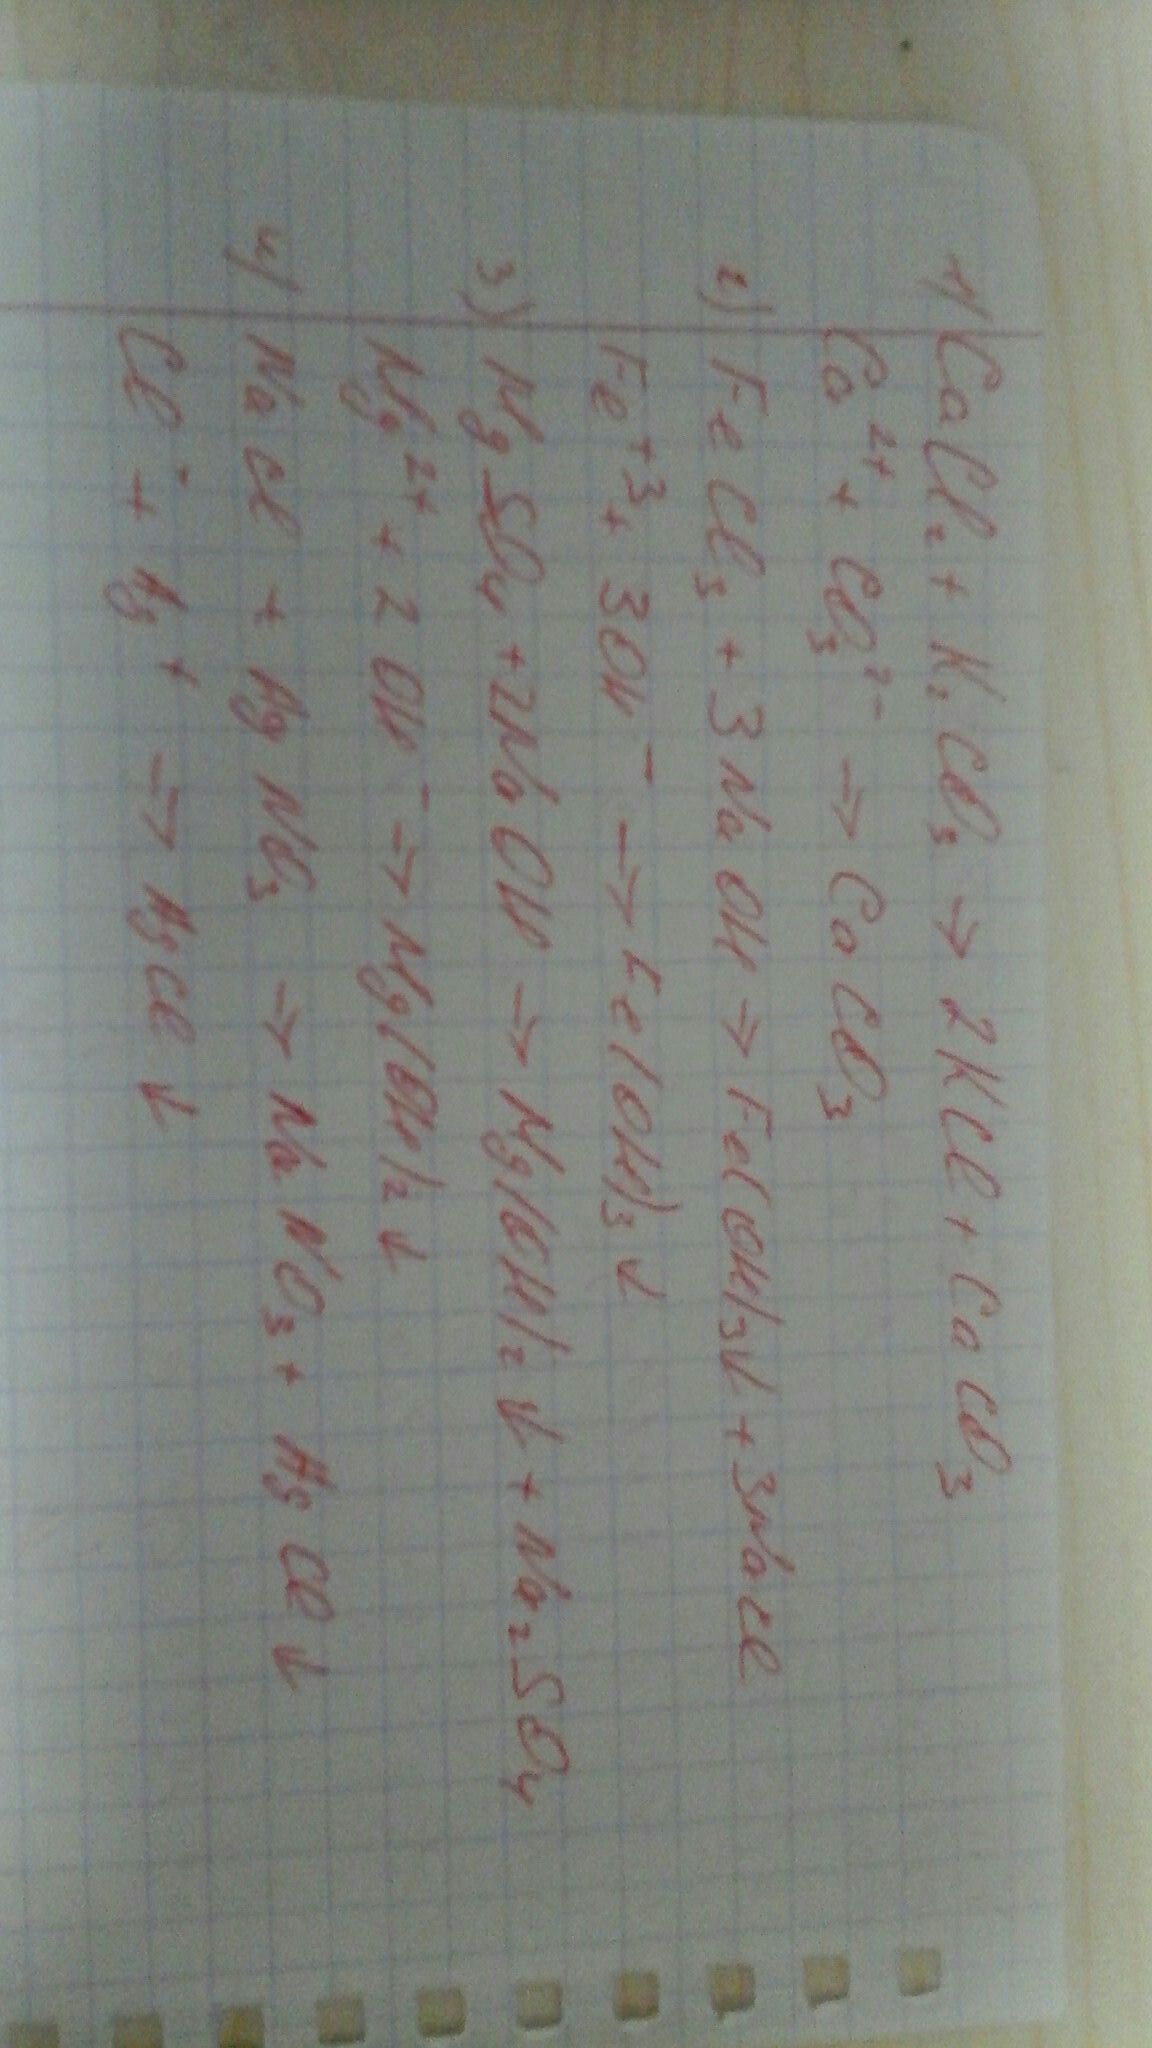 1) CaCl₂ + K₂CO₃ → 2KCl + CaCO₃
Ca²⁺ + CO₃²⁻ → CaCO₃
2) FeCl₃ + 3NaOH → Fe(OH)₃↓ + 3NaCl
Fe⁺³ + 3OH⁻ → Fe(OH)₃↓
3) MgSO₄ + 2NaOH → Mg(OH)₂↓ + Na₂SO₄
Mg²⁺ + 2OH⁻ → Mg(OH)₂↓
4) NaCl + AgNO₃ → NaNO₃ + AgCl↓
Cl⁻ + Ag⁺ → AgCl↓